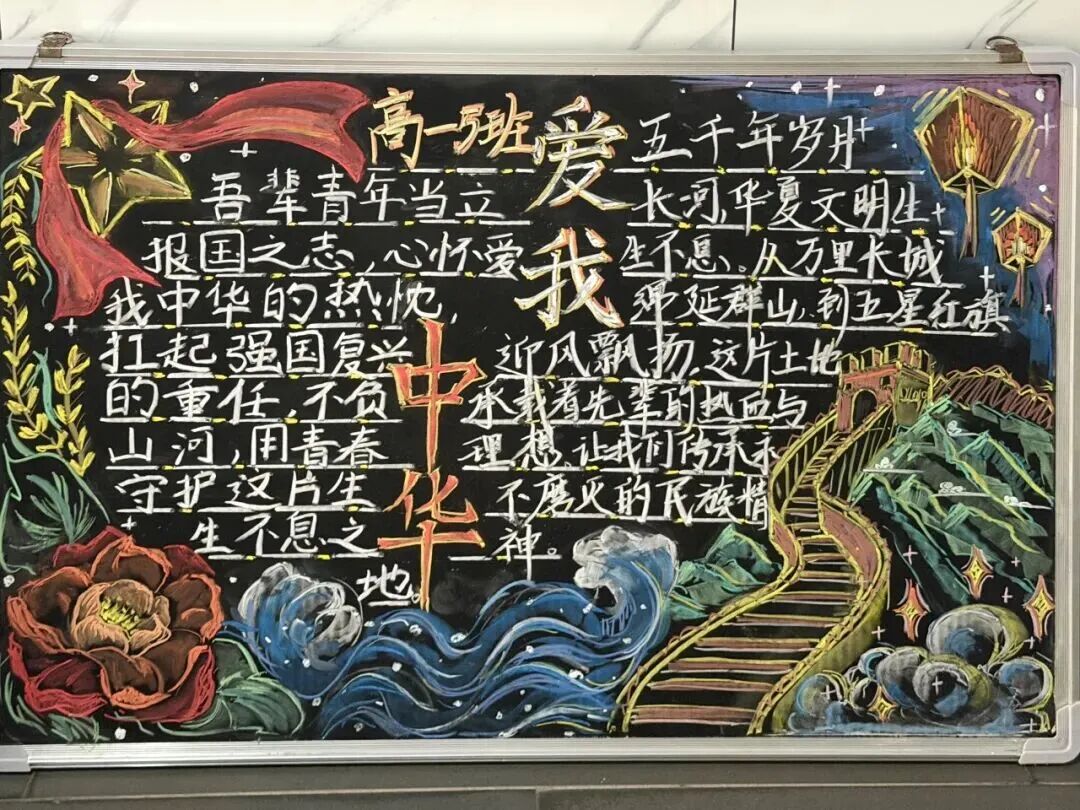 高一5班
爱我中华
吾辈青年当立
报国之志，心怀爱
我中华的热忱，
扛起强国复兴
的重任，不负
山河，用青春
守护这片生
生不息之
地。
五千年岁月
长河，华夏文明生
生不息。从万里长城
绵延群山，到五星红旗
迎风飘扬，这片土地
承载着先辈的热血与
理想，让我们传承永
不磨灭的民族精
神。